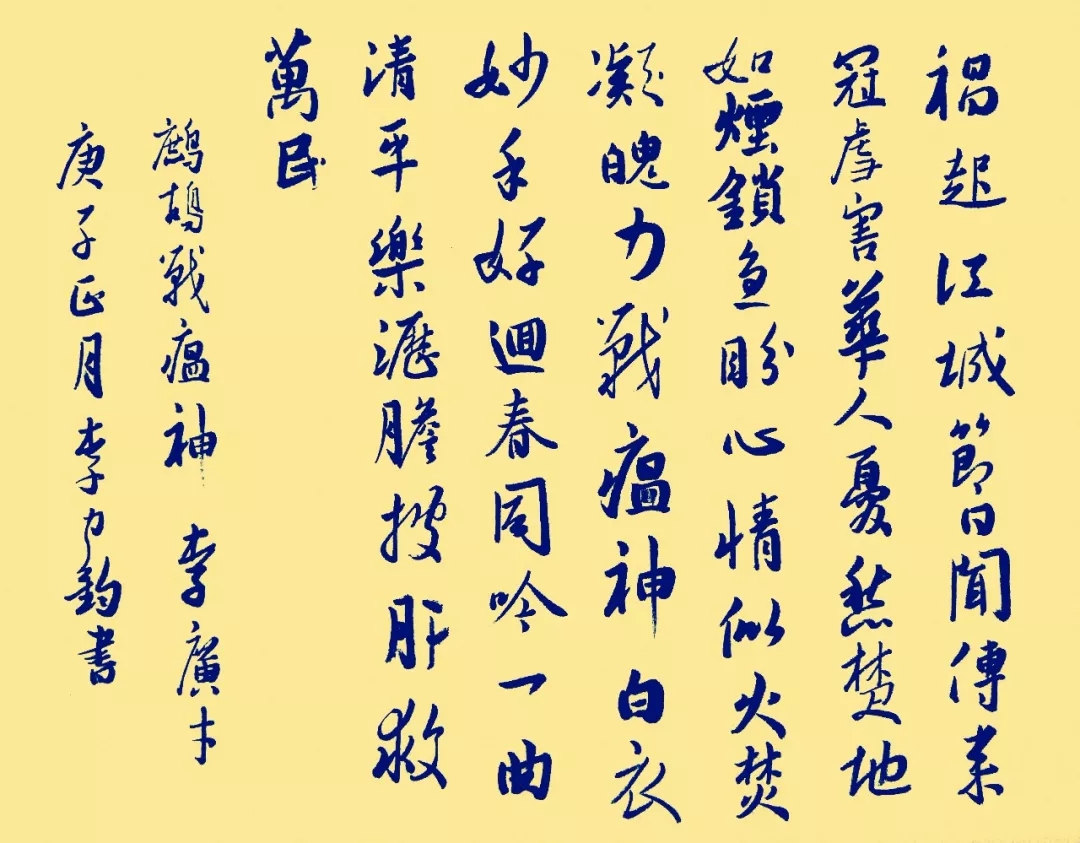 禍起江城節日聞傳来
冠虐害華人憂愁楚地
如煙鎖急盼心情似火焚
凝魄力戰瘟神白衣
妙手好迴春同吟一曲
清平樂瀝膽披肝救
萬民
鷓鴣戰瘟神 李廣才
庚子正月李鈞書